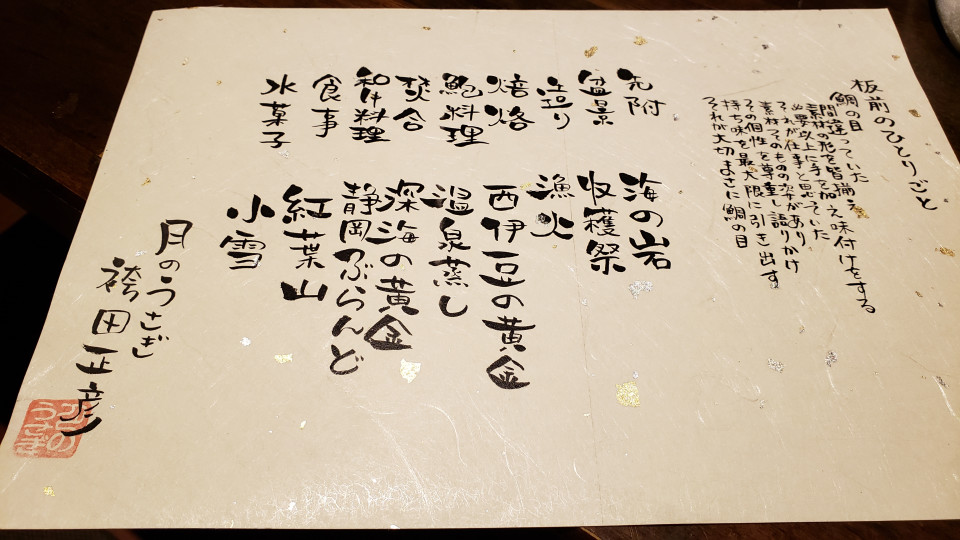 板前のひとりごと
鯛の目
間違っていた
素材の形を皆揃え味付けをする
必要以上に手を加え
それが仕事と思っていた
素材そのものの姿があり
その個性を尊重し語りかけ
持ち味を最大限に引き出す
それが大切まさに鯛の目
先附 海の岩
盆景 収穫祭
造り 漁火
焙烙 西伊豆の黄金
鮑料理 温泉蒸し
焚合 深海の黄金
和牛料理 静岡ぶらんど
食事 紅葉山
水菓子 小雪
月のうさぎ
袴田正彦
月のうさぎ